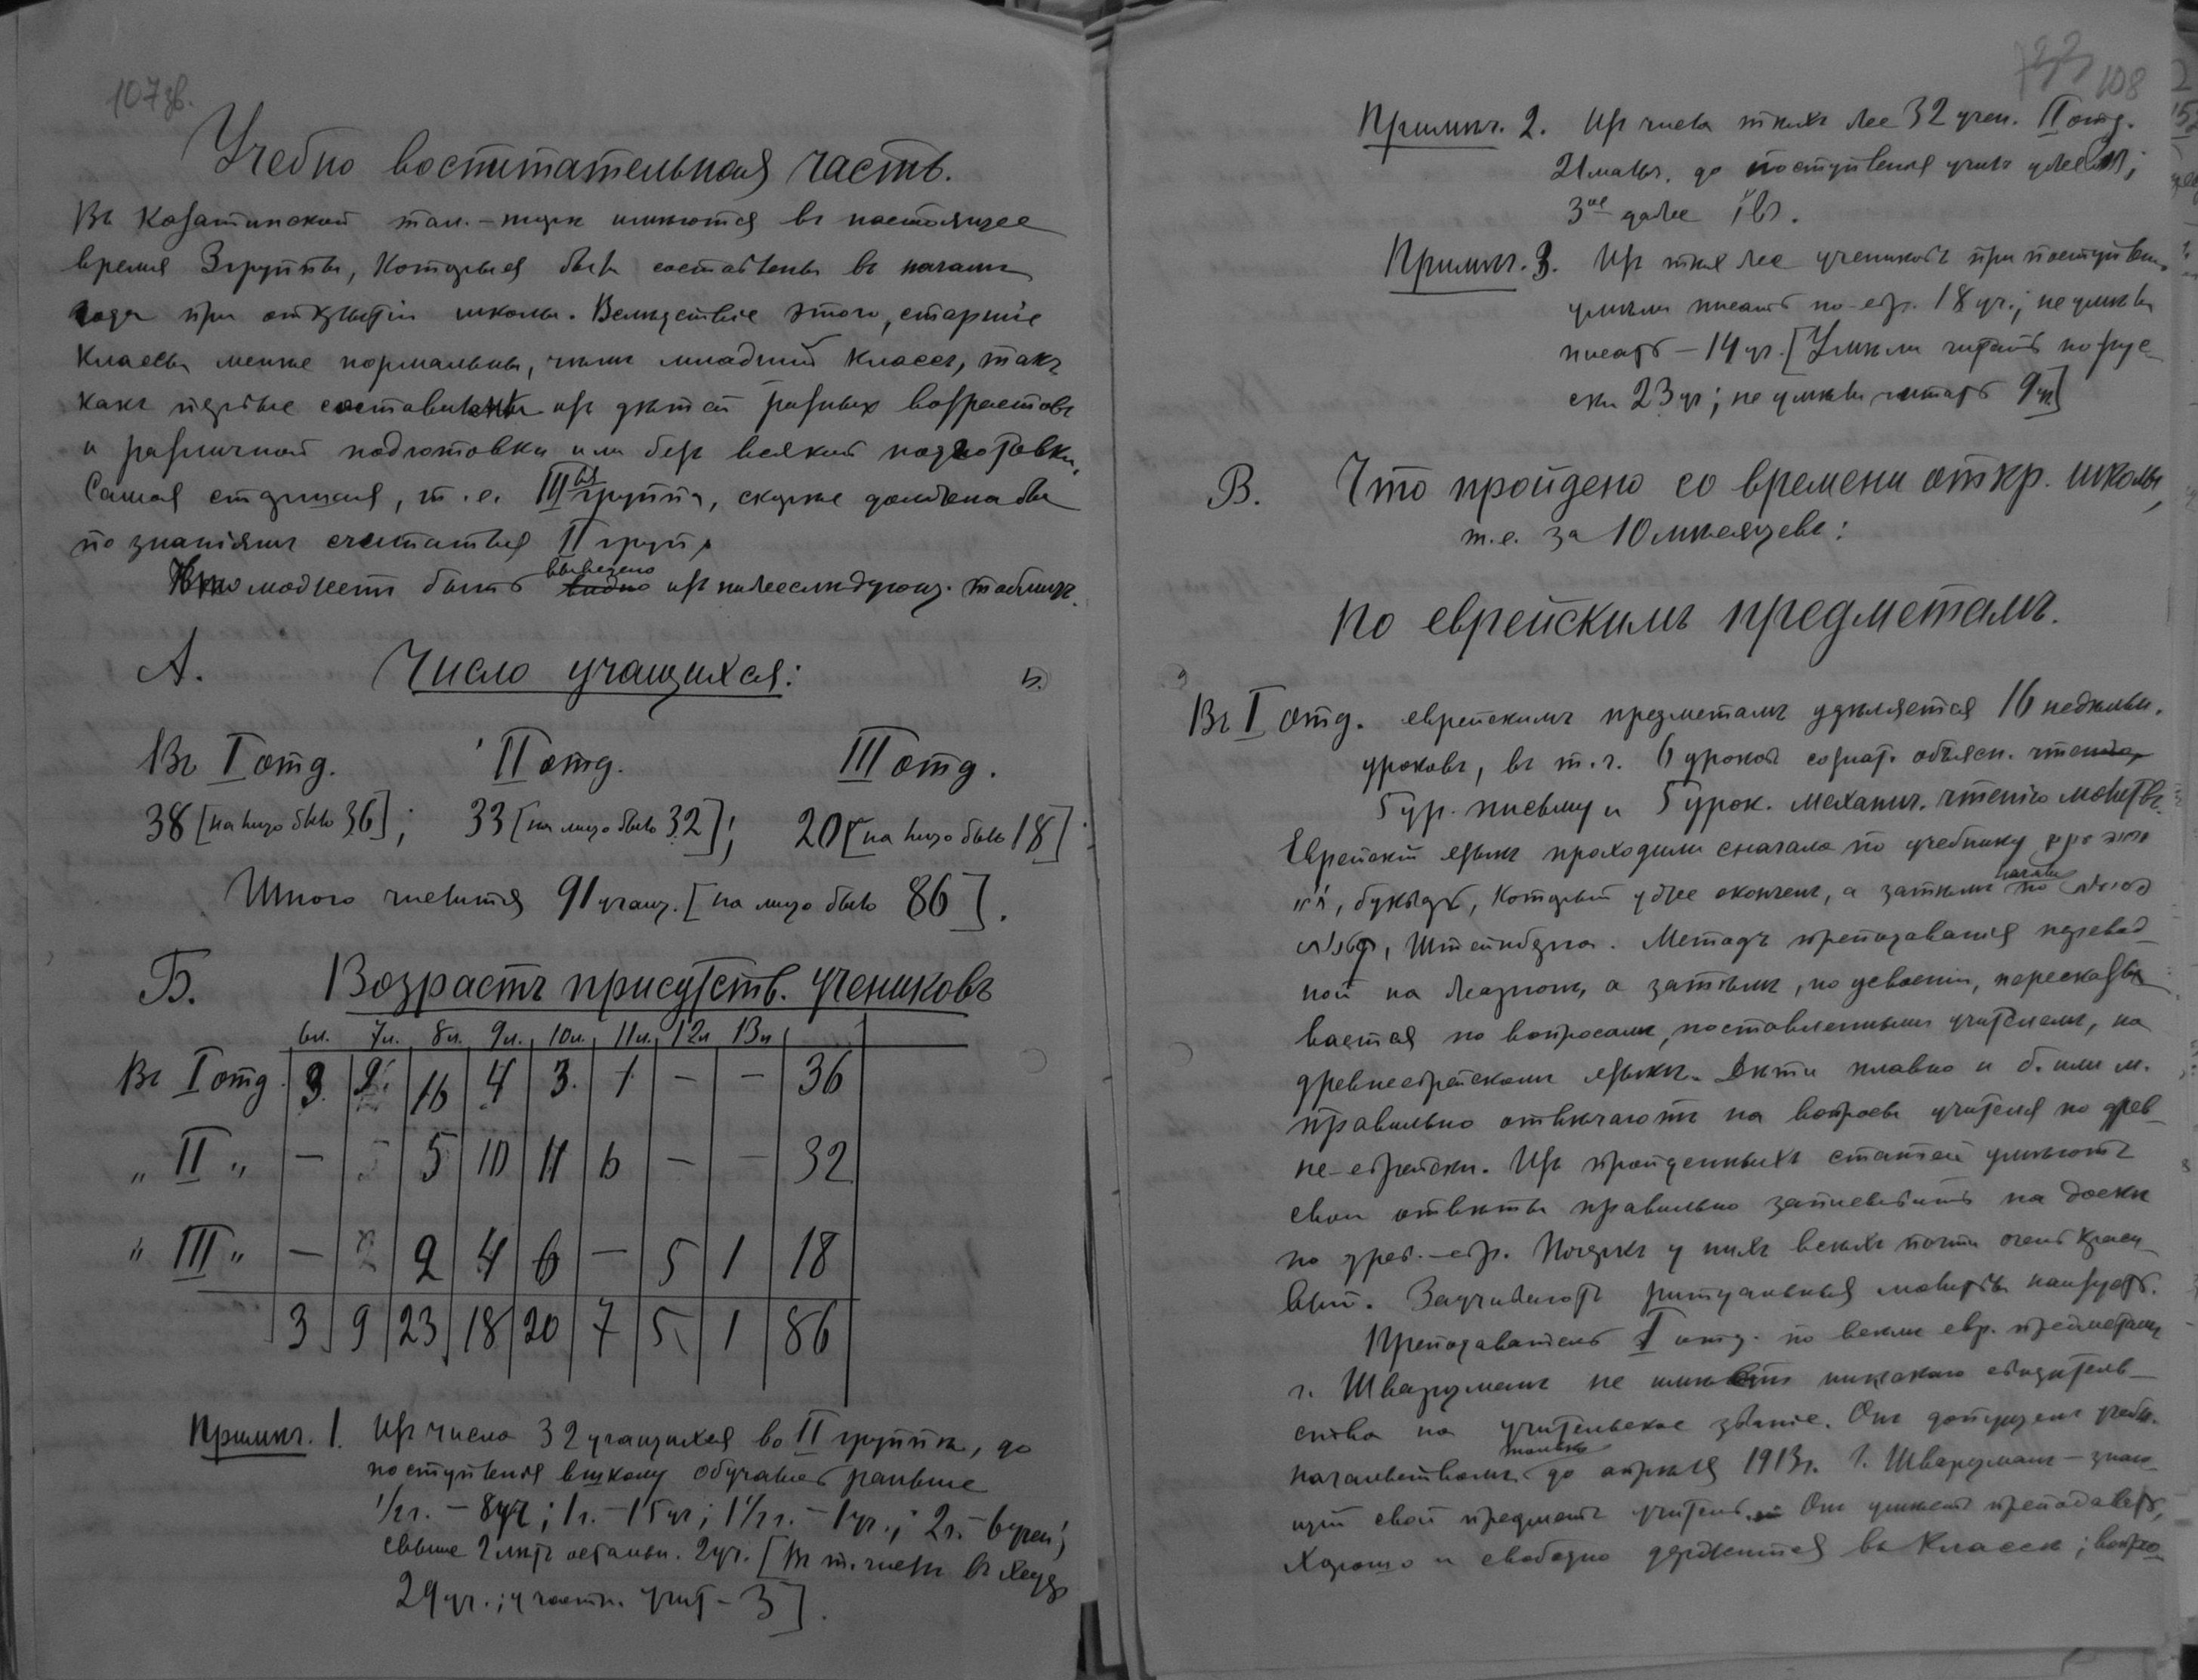 107 зв.
Учебно воспитательная часть.
Въ Козатинской тал.-торѣ имѣются въ настоящее
время 3 группы, которыя были составлены въ началѣ
года при открытіи школы. Вслѣдствіе этого, старшіе
классы менѣе нормальны, чѣмъ младшій классъ, такъ
какъ первые составлены изъ дѣтей разныхъ возрастовъ
и различной подготовки или безъ всякой подготовки.
Самая старшая, т.е. III ья группа, скорѣе должна бы
по знаніямъ считаться II групп.
Это можетъ быть выведено видно изъ нижеслѣдующ. таблицъ.
А. Число учащихся:
Въ I отд. II отд. III отд.
38 [на лицо было 36]; 33 [на лицо было 32]; 20 [на лицо было 18]
Итого числится 91 учащ. [на лицо было 86].
Б. Возрастъ присутств. учениковъ
6 л. 7 л. 8 л. 9 л. 10 л. 11 л. 12 л 13 л
Въ I отд. 3. 16 4 3. 1 — — 36
„ II „ — 5 10 11 6 — — 32
„ III „ — 2 4 6 — 5 1 18
3 9 23 18 20 7 5 1 86
Примѣч. 1. Изъ числа 32 учащихся во II группѣ, до
поступленія въ школу обучались раньше
1/2 г. – 8 уч; 1 г. – 15 уч; 1 1/2 г. – 1 уч.; 2 г. – 6 учен;
свыше 2 лѣтъ остальн. 2 уч. [Въ т. числѣ въ хедерѣ
29 уч.; у частн. учит – 3].
108
Примѣч. 2. Изъ числа тѣхъ же 32 учен. II отд.
21 мальч. до поступленія
3 ое далѣе
Примѣч. 3. Изъ тѣхъ же учениковъ при поступлен.
умѣли писать по-евр. 18 уч.; не умѣли
писать – 14 уч. [Умѣли читать по рус-
ски 23 уч; не умѣли читать 9 уч]
В. Что пройдено со времени откр. школы,
т.е. за 10 мѣсяцевъ:
по еврейскимъ предметамъ.
Въ I отд. еврейскимъ предметамъ удѣляется 16 недѣльн.
уроковъ, въ т.ч. 6 уроковъ сознат. объясн. чтенія,
5 ур. письму и 5 урок. механич. чтенію молитвъ.
Еврейскій языкъ проходили сначала по учебнику
букварь, который уже оконченъ, а затѣмъ начали по
Штейнберга. Методъ преподаванія перевод-
ной на жаргонъ, а затѣмъ, по усвоеніи, пересказы-
вается по вопросамъ, поставленнымъ учителемъ, на
древнееврейскомъ языкѣ. Дѣти плавно и б. или м.
правильно отвѣчаютъ на вопросы учителя по древ-
не-еврейски. Изъ пройденныхъ статей умѣютъ
свои отвѣты правильно записывать на доскѣ
по древ.-евр. Почеркъ у нихъ всѣхъ почти очень краси-
вый. Заучиваютъ ритуальныя молитвы наизусть.
Преподаватель I отд. по всѣмъ евр. предметамъ
г. Шварцманъ не имѣетъ никакого свидѣтель-
ства на учительское званіе. Онъ допущенъ учебн.
начальствомъ только до апрѣля 1913 г. Г. Шварцманъ – знаю-
щій свой предметъ учитель. Онъ умѣетъ преподавать,
хорошо и свободно держится въ классѣ; вопро-